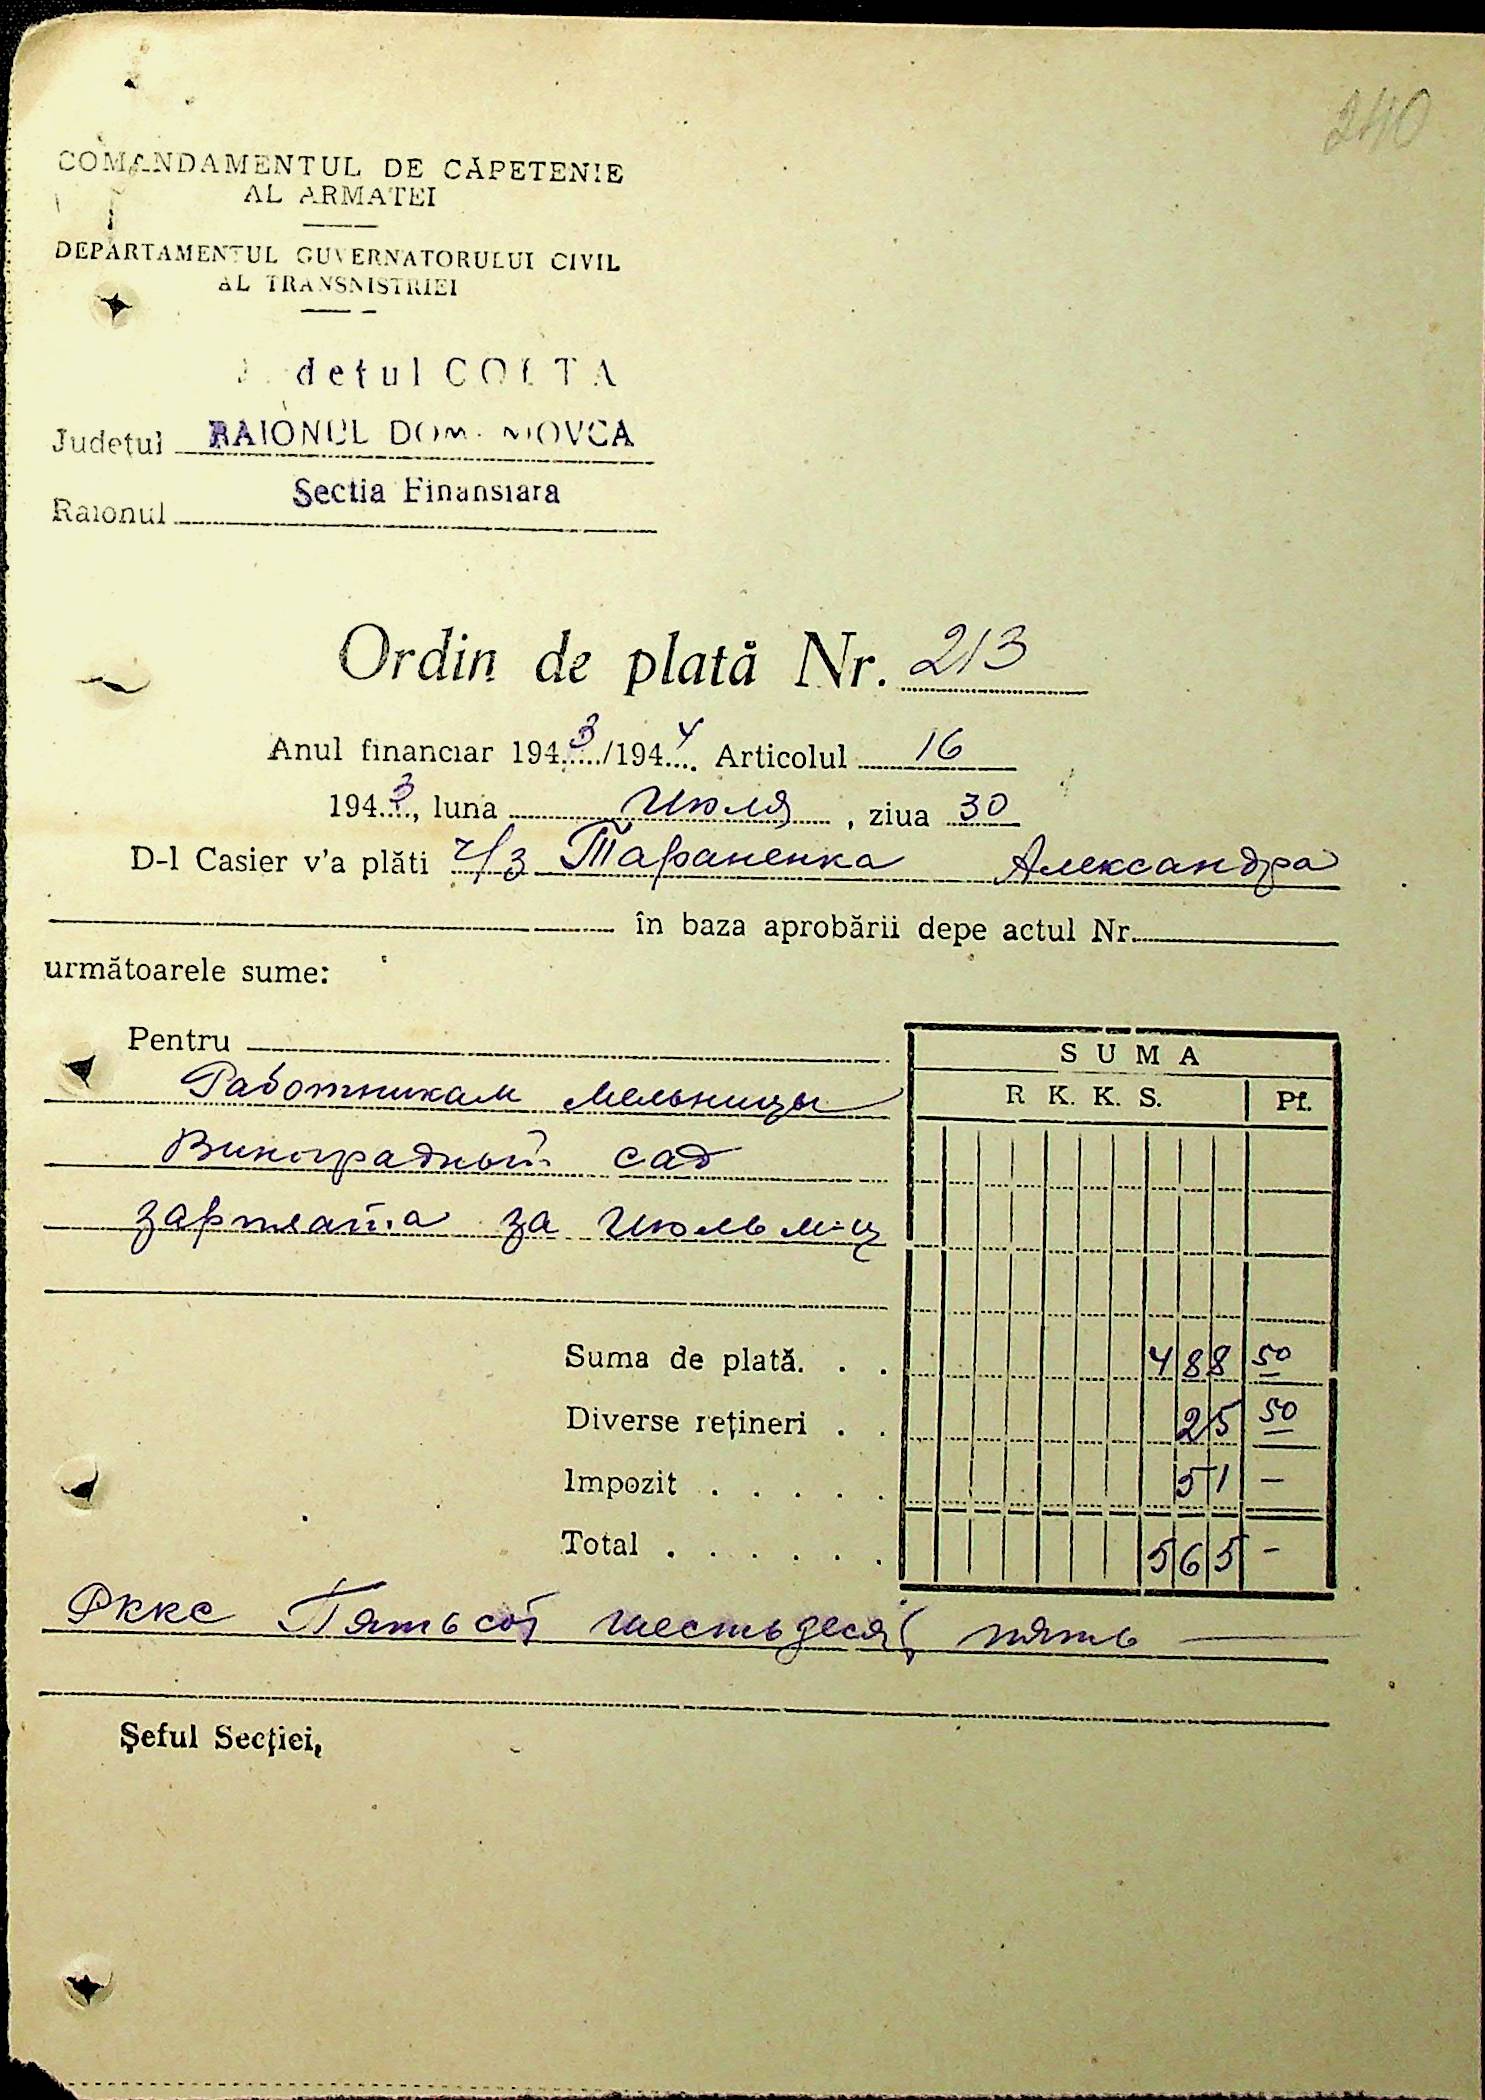 240
COMANDAMENTUL DE CĂPETENIE
AL ARMATEI
DEPARTAMENTUL GUVERNATORULUI CIVIL
AL TRANSNISTRIEI
detul GOLTA
Județul RAIONUL DOM. NOVCA
Sectia Finansiara
Raionul
Ordin de plată Nr. 213
Anul financiar 1943/1944 Articolul 16
1943, luna Июля, ziua 30
D-l Casier v'a plăti ч/з Тараненка Александра
în baza aprobării depe actul Nr.
următoarele sume:
Pentru
Работникам мельницы
Виноградный сад
зарплата за июль м-ц
SUMA
R. K. K. S. Pf.
Suma de plată. . . 488 50
Diverse rețineri . . 25 50
Impozit . . . . . 51 –
Total . . . . . . 565 –
Рккс Пятьсот шестьдесят пять
Șeful Secției,